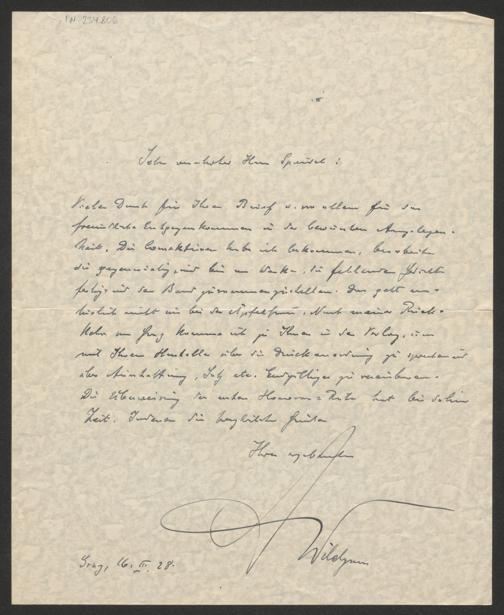 IN 234.806
Sehr verehrter Herr
Vielen Dank für Ihren Brief u. vor allem für das
freundliche Entgegenkommen in der bewussten Angelegen-
heit. Die Korrekturen habe ich bekommen,
sie gegenwärtig, und bin am Werke, die fehlenden
fertig und den Band zusammenzustellen. Das geht
nicht wie bei der Nach meiner Rück-
kehr von Graz komme ich zu Ihnen in den Verlag, um
mit Ihrem über die Druckanordnung zu sprechen und
über Ausstattung, Satz etc. Endgültiges zu vereinbaren.
Die Überweisung der ersten Honorar-Rate hat bis dahin
Zeit. Indessen die herzlichsten Grüße
Ihres ergebenen
Wildgans
Graz, 16. III. 28.